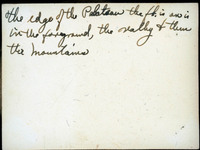 the edge of the Plateau the
in the foreground, the valley & then
the mountains